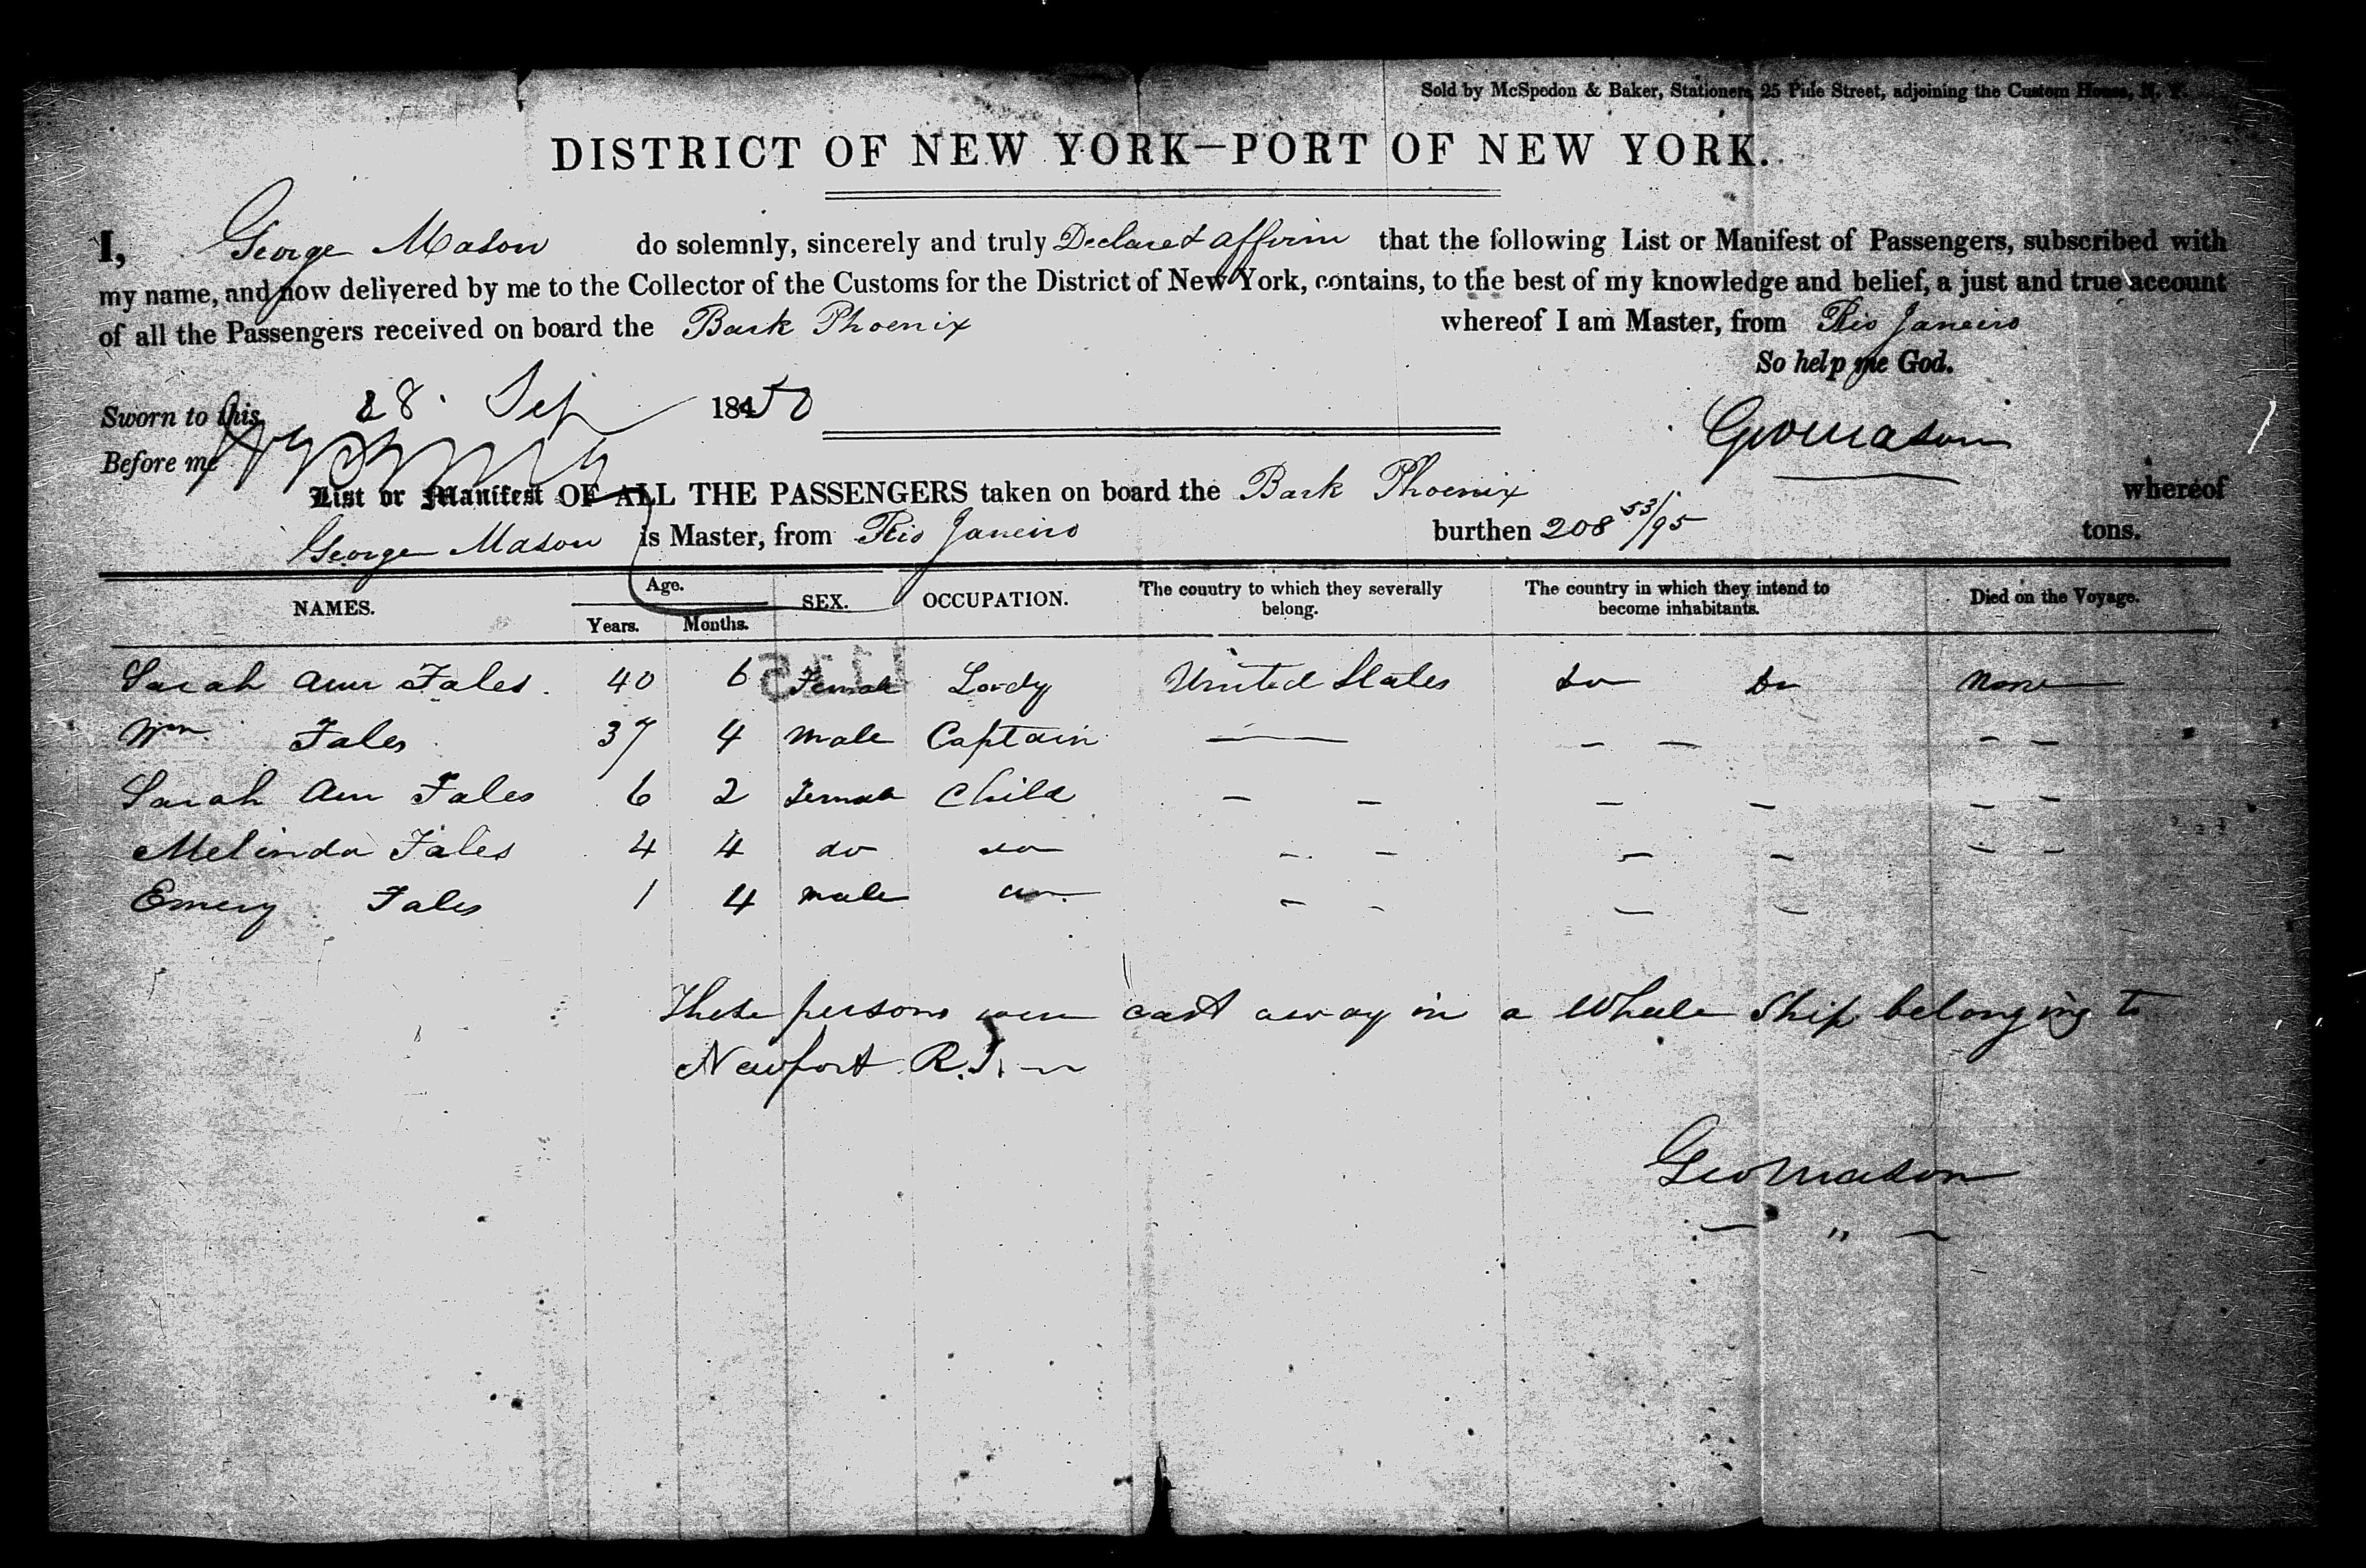 Sold by McSpedon & Baker, Stationers, 25 Pine Street, adjoining the Custom House, N. Y.
DISTRICT OF NEW YORK—PORT OF NEW YORK.
I, George Mason do solemnly, sincerely and truly Declare & affirm that the following List or Manifest of Passengers, subscribed with
my name, and now delivered by me to the Collector of the Customs for the District of New York, contains, to the best of my knowledge and belief, a just and true account
of all the Passengers received on board the Bark Phoenix whereof I am Master, from Rio Janeiro
So help me God.
Sworn to this 28. Sep 1850
Geo Mason
Before me
List or Manifest OF ALL THE PASSENGERS taken on board the Bark Phoenix whereof
George Mason is Master, from Rio Janeiro burthen 208 53/95 tons.
NAMES. Age. Years. Months. SEX. OCCUPATION. The country to which they severally belong. The country in which they intend to become inhabitants. Died on the Voyage.
1125
Sarah Ann Fales. 40 6 Female Lady United States do do None
Wm. Fales 37 4 Male Captain — — — — —
Sarah Ann Fales 6 2 Female Child — — — — — —
Melinda Fales 4 4 do do — — — — — —
Emery Fales 1 4 male do — — — —
These persons were cast away in a Whale Ship belonging to
Newport R.I.
Geo Mason
— " —